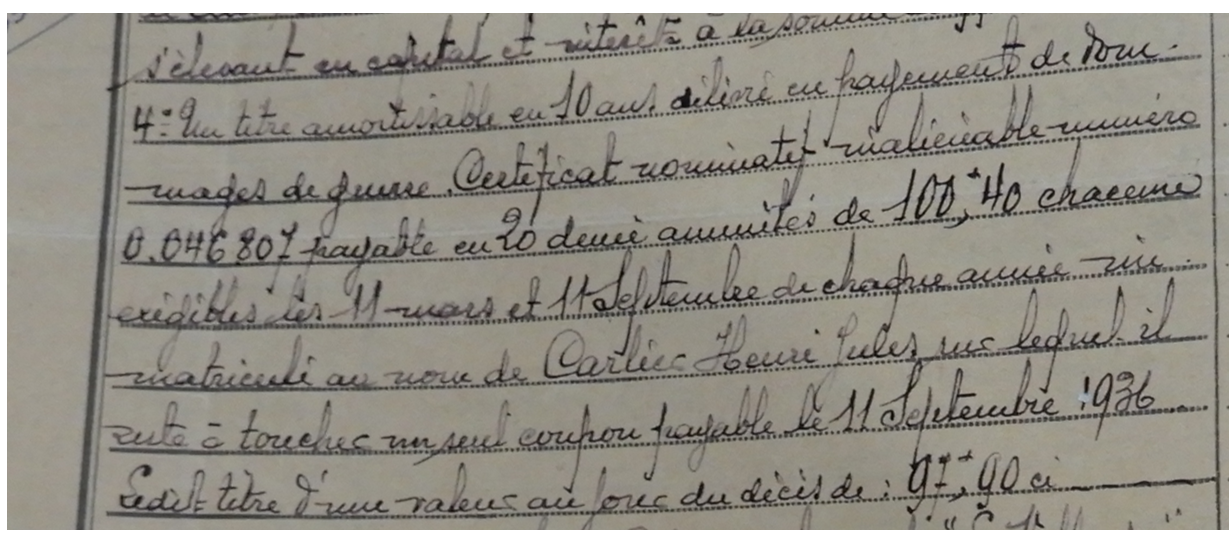 s'élevant en capital et intérêt à la somme
4:= Un titre amortissable en 10 ans délivré en payement de dom-
mages de guerre. Certificat nominatif inaliénable numéro
0.046807 payable en 20 demie annuités de 100,+40 chacune
exigibles les 11 mars et 11 Septembre de chaque année im-
matriculé au nom de Carlier Henri Jules sur lequel il
reste à toucher un seul coupon payable le 11 Septembre 1936
Ledit titre d'une valeur au jour du décès de : 97,+90 ci